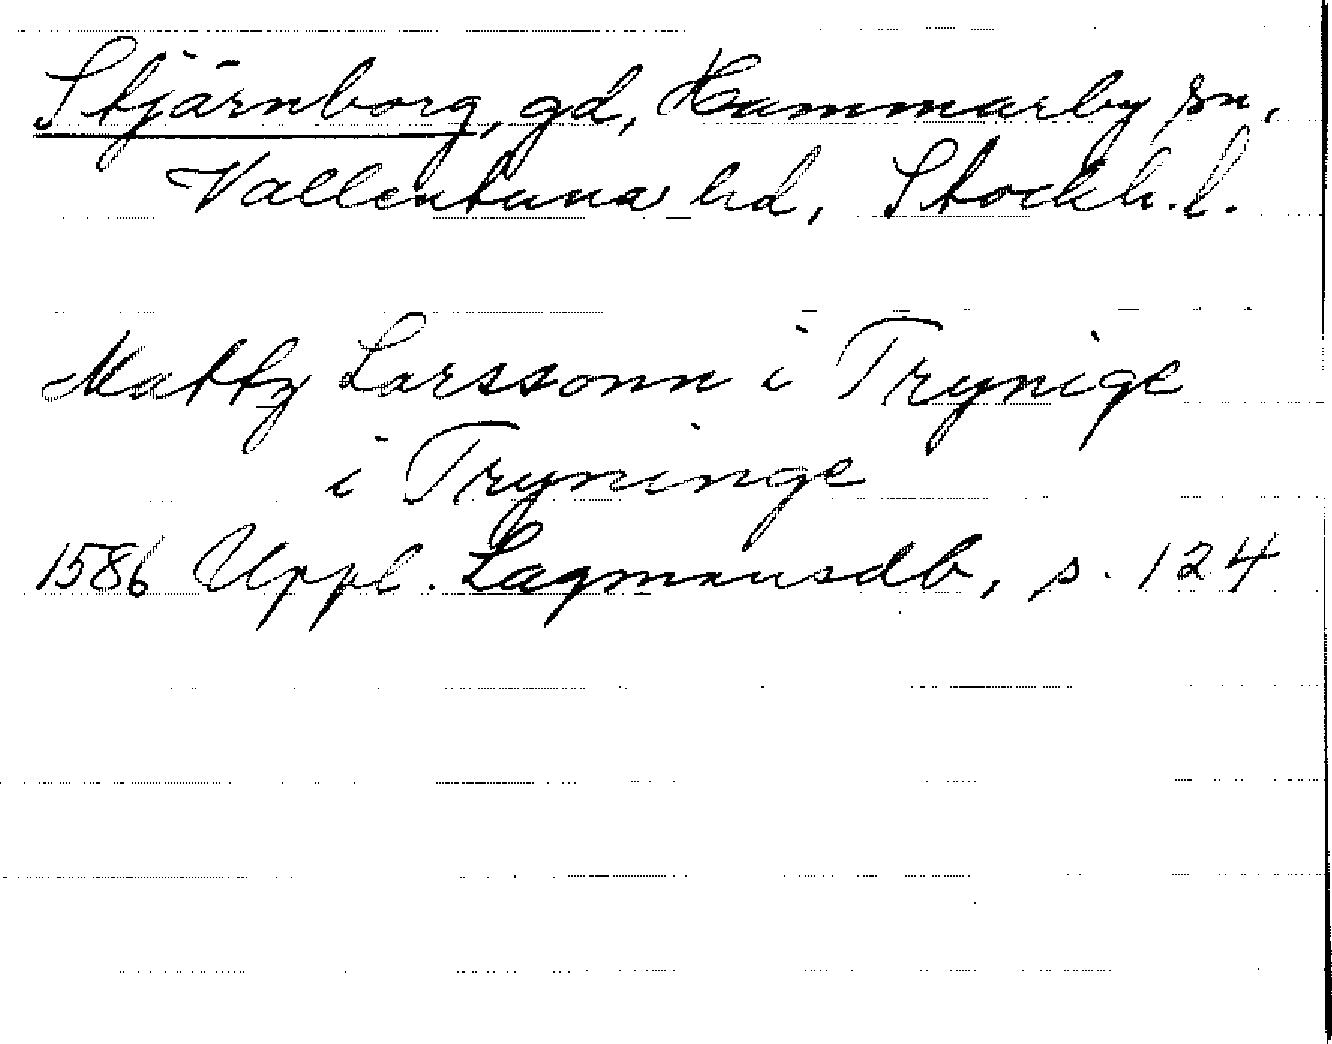 Stjärnborg, gd, Hammarby sn,
Vallentuna hd, Stockh. l.
Mattz Larssonn i Trynige
i Tryninge
1586 Uppl. Lagmansdb, s. 124